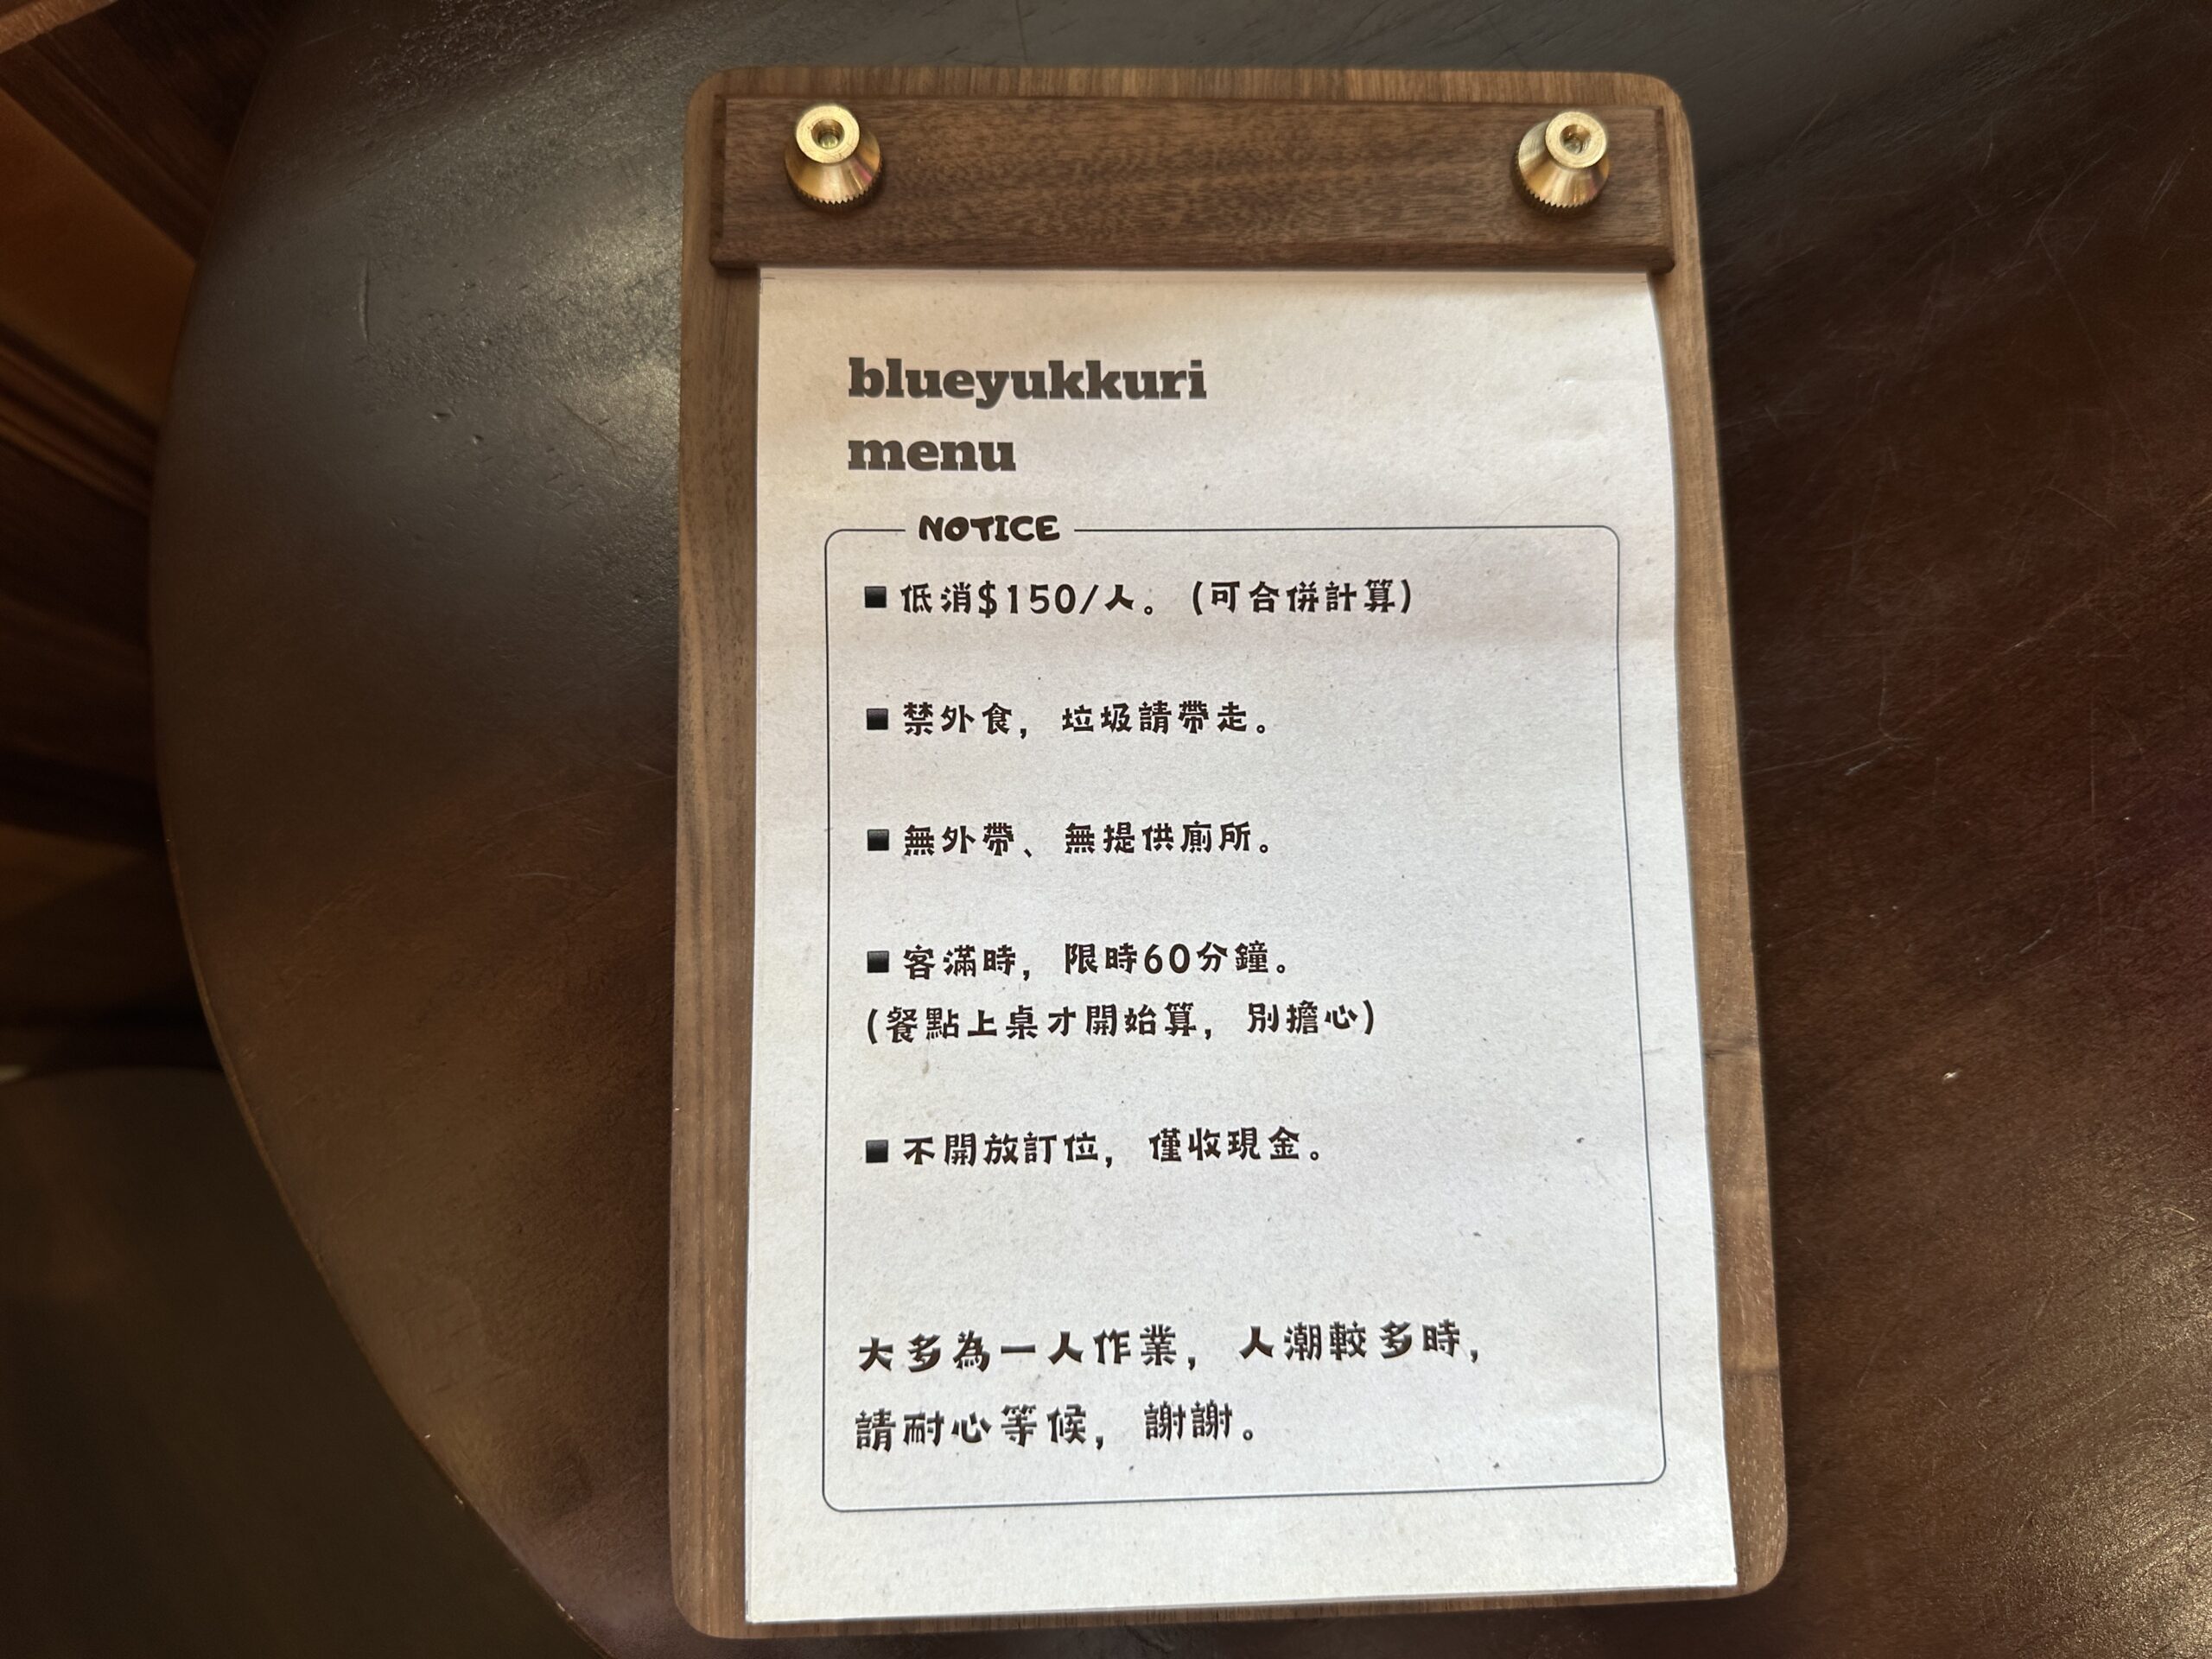 blueyukkuri
menu
NOTICE
▪低消$150/人。(可合併計算)
▪禁外食，垃圾請帶走。
▪無外帶、無提供廁所。
▪客滿時，限時60分鐘。
(餐點上桌才開始算，別擔心)
▪不開放訂位，僅收現金。
大多為一人作業，人潮較多時，
請耐心等候，謝謝。